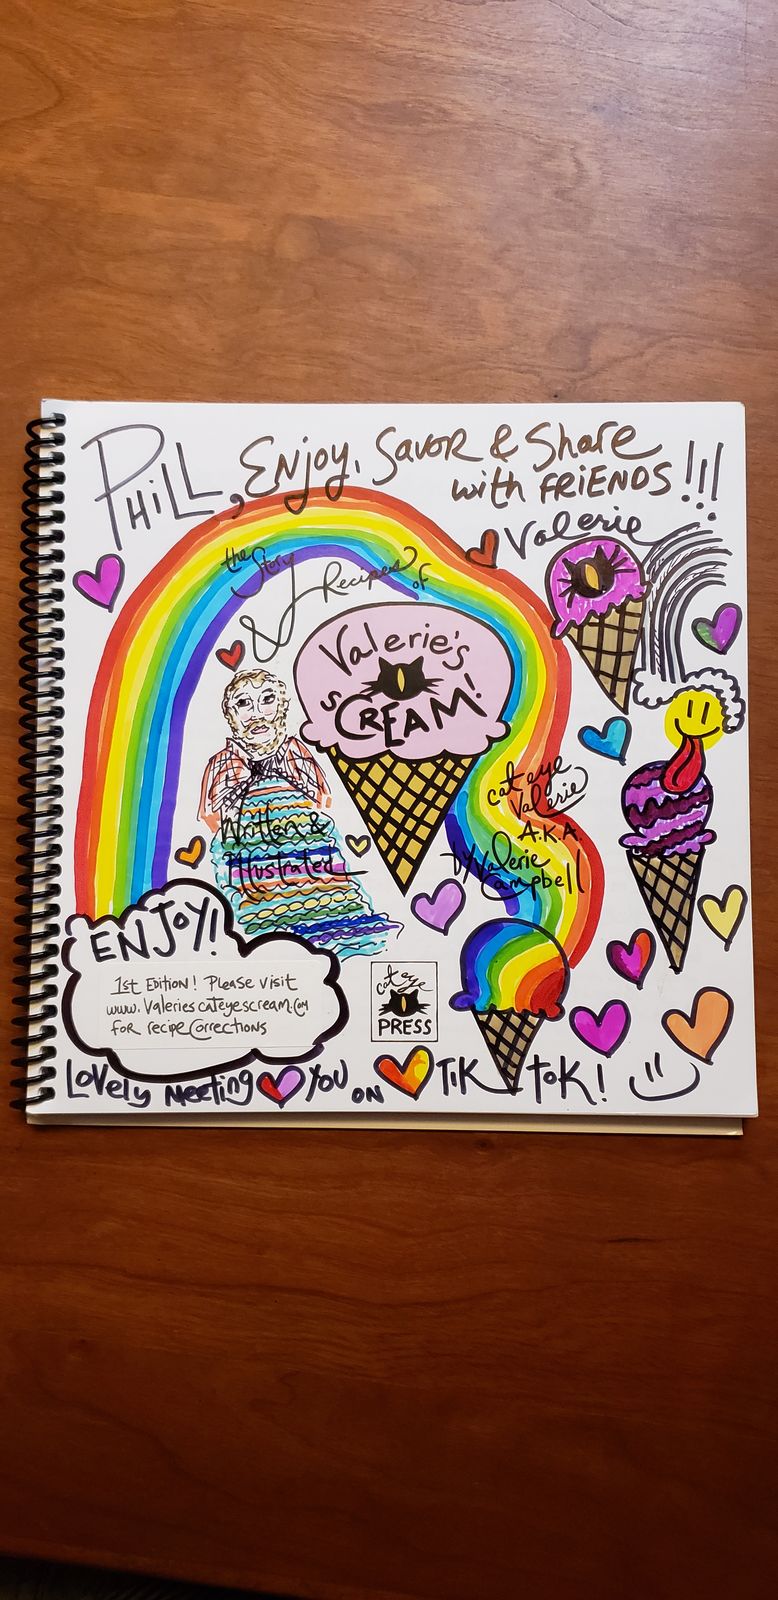 PHiLL, ENjoy, SavoR & Share
with FRiENDS!!!
Valerie
the Story
& Recipes of
Valerie's
sCREAM!
cat eye
Valerie
A.K.A.
Written &
Illustrated
by Valerie
Campbell
ENJOY!
1st Edition! Please visit
www.Valeriescateyescream.com
for recipe Corrections
cat eye
PRESS
LOVELY MEETiNg YOU ON TiK toK!